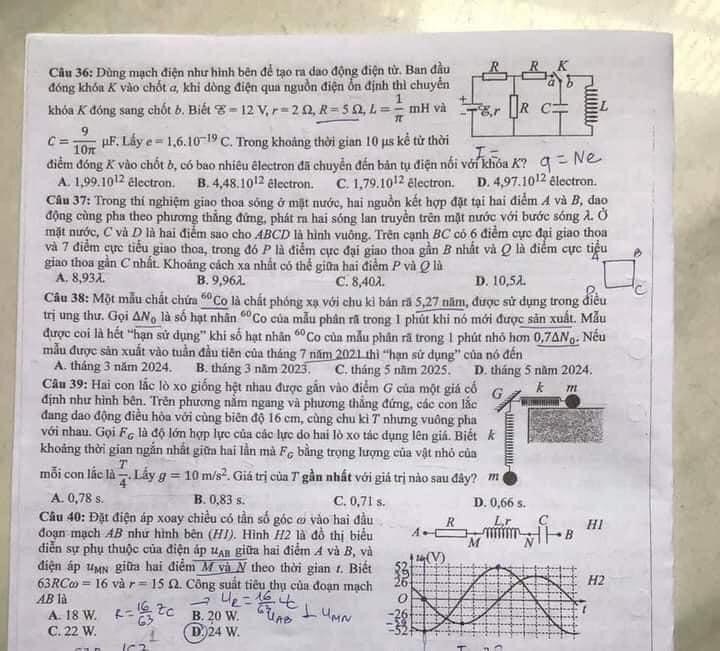 Câu 36: Dùng mạch điện như hình bên để tạo ra dao động điện từ. Ban đầu
đóng khóa K vào chốt a, khi dòng điện qua nguồn điện ổn định thì chuyển
khóa K đóng sang chốt b. Biết ℰ = 12 V, r = 2 Ω, R = 5 Ω, L = 1/π mH và
C = 9/10π μF. Lấy e = 1,6.10⁻¹⁹ C. Trong khoảng thời gian 10 μs kể từ thời
điểm đóng K vào chốt b, có bao nhiêu êlectron đã chuyển đến bản tụ điện nối với khóa K? q = Ne
A. 1,99.10¹² êlectron. B. 4,48.10¹² êlectron. C. 1,79.10¹² êlectron. D. 4,97.10¹² êlectron.
R R K
a b
+
-
ℰ,r R C L
I =
Câu 37: Trong thí nghiệm giao thoa sóng ở mặt nước, hai nguồn kết hợp đặt tại hai điểm A và B, dao
động cùng pha theo phương thẳng đứng, phát ra hai sóng lan truyền trên mặt nước với bước sóng λ. Ở
mặt nước, C và D là hai điểm sao cho ABCD là hình vuông. Trên cạnh BC có 6 điểm cực đại giao thoa
và 7 điểm cực tiểu giao thoa, trong đó P là điểm cực đại giao thoa gần B nhất và Q là điểm cực tiểu
giao thoa gần C nhất. Khoảng cách xa nhất có thể giữa hai điểm P và Q là
A. 8,93λ. B. 9,96λ. C. 8,40λ. D. 10,5λ.
A B
D C
Câu 38: Một mẫu chất chứa ⁶⁰Co là chất phóng xạ với chu kì bán rã 5,27 năm, được sử dụng trong điều
trị ung thư. Gọi ΔN₀ là số hạt nhân ⁶⁰Co của mẫu phân rã trong 1 phút khi nó mới được sản xuất. Mẫu
được coi là hết “hạn sử dụng” khi số hạt nhân ⁶⁰Co của mẫu phân rã trong 1 phút nhỏ hơn 0,7ΔN₀. Nếu
mẫu được sản xuất vào tuần đầu tiên của tháng 7 năm 2021 thì “hạn sử dụng” của nó đến
A. tháng 3 năm 2024. B. tháng 3 năm 2023. C. tháng 5 năm 2025. D. tháng 5 năm 2024.
Câu 39: Hai con lắc lò xo giống hệt nhau được gắn vào điểm G của một giá cố
định như hình bên. Trên phương nằm ngang và phương thẳng đứng, các con lắc
đang dao động điều hòa với cùng biên độ 16 cm, cùng chu kì T nhưng vuông pha
với nhau. Gọi F_G là độ lớn hợp lực của các lực do hai lò xo tác dụng lên giá. Biết
khoảng thời gian ngắn nhất giữa hai lần mà F_G bằng trọng lượng của vật nhỏ của
mỗi con lắc là T/4. Lấy g = 10 m/s². Giá trị của T gần nhất với giá trị nào sau đây?
A. 0,78 s. B. 0,83 s. C. 0,71 s. D. 0,66 s.
G k m
k
m
Câu 40: Đặt điện áp xoay chiều có tần số góc ω vào hai đầu
đoạn mạch AB như hình bên (H1). Hình H2 là đồ thị biểu
diễn sự phụ thuộc của điện áp u_AB giữa hai điểm A và B, và
điện áp u_MN giữa hai điểm M và N theo thời gian t. Biết
63RCω = 16 và r = 15 Ω. Công suất tiêu thụ của đoạn mạch
AB là
A. 18 W. B. 20 W.
C. 22 W. D. 24 W.
R = 16/63 ZC
→ U_R = 16/63 U_C
U_AB ⊥ U_MN
R L,r C H1
A M N B
u(V)
52
26
O t
-26
-52
H2